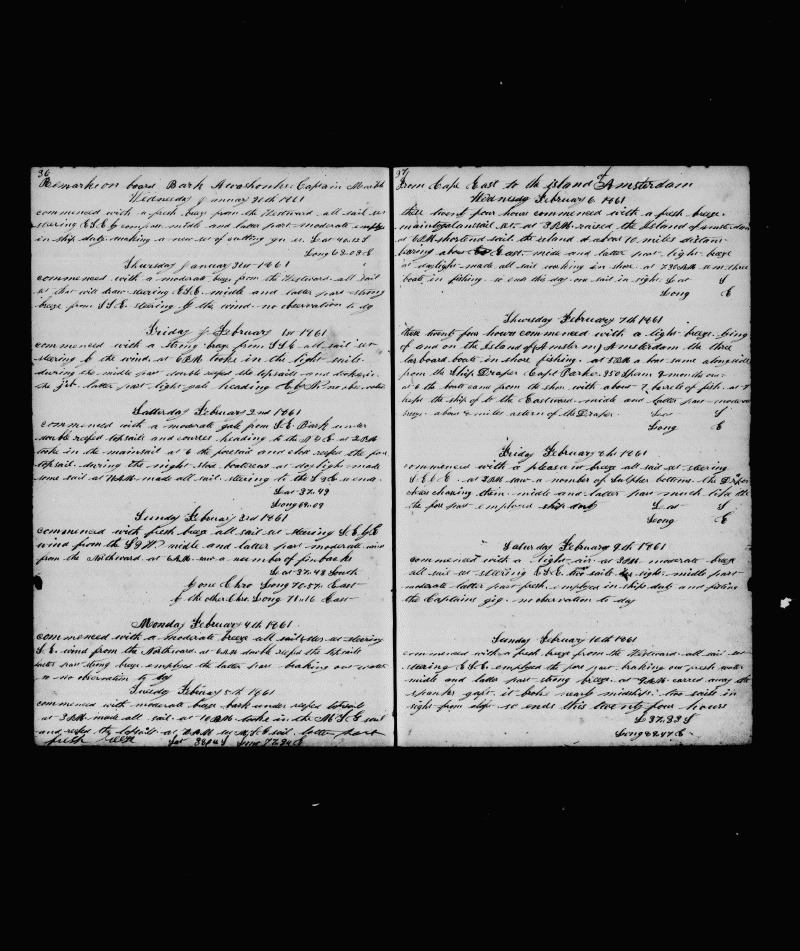 36
Remarks on board Bark Awashonks Captain
Wednesday January 30th 1861
commenced with a fresh breeze from the Westward all sail set
stearing E S E by compass midle and latter part moderate employed
in ship duty making a new set of cutting gu Lat 40.12 S
Long 63.03 E
Thursday January 31st 1861
commenced with a moderate breeze from the Westward all sail
set that will draw stearing E S E midle and latter part strong
breeze from S S E stearing by the wind no observation to day
Friday February 1st 1861
commenced with a strong breeze from S S E all sail set
stearing by the wind at 6 P.M. tooke in the light sails
during the midle part double refed the topsails and tooke in
the jib latter part light gale heading E by N no observation
Satterday February 2nd 1861
commenced with a moderate gale from S.E. Bark under
double refed topsails and courses heading to the N & E at 2 P.M.
tooke in the mainsail at 6 the foresail and close refed the fore
topsail during the night at daylight made
some sail at 11 A.M. made all sail stearing to the S & E
Lat 37.49
Long 69.09
Sunday February 3rd 1861
commenced with fresh breeze all sail set stearing S.E. by E
wind from the S & W midle and latter part moderate wind
from the Northward at 6 A.M. saw a number of finbacks
Lat 37.48 South
by one Chro Long 70.57 East
by the other Chro. Long 71.16 East
Monday February 4th 1861
commenced with a moderate breeze all sail set stearing
S.E. wind from the Northward at 6 A.M. double refed the topsails
latter part strong breeze employed the latter part braking out water
so no observation to day
Tuesday February 5th 1861
commenced with moderate breeze bark under refed topsails
at 3 P.M. made all sail at 10 P.M. tooke in the sail
and refed the topsails at A.M. sail latter part
fresh breeze Lat 38.04 S Long 77.34 E
37
From Cape East to the island of Amsterdam
Wednesday February 6 1861
these twent four hours commenced with a fresh breeze
maintogalansail set at 3 P.M. raised the Island of amsterdam
at 6 P.M. shortend sail the island d about 10 miles distant
baring about East midle and latter part light breeze
at daylight made all sail working in shore at 7.30 A.M. three
boats in fishing so ends this day one sail in sight Lat S
Long E
Thursday February 7th 1861
these twent four hours commenced with a light breeze being
of and on the Island of (Amsterm) Amsterdam the three
larboard boats in shore fishing at 3 P.M. a boat came alongside
from the Ship Draper Capt Parker 350 Sparm 8 months out
at 6 the boats came from the shore with about 7 barels of fish at 7
kept the ship of to the Eastward midle and latter part moderate
breeze about 2 miles astern of the Draper Lat S
Long E
Friday February 8th 1861
commenced with a pleasant breeze all sail set stearing
S.E. b E. at 3 P.M. saw a nomber of Sulpher bottoms the Draper
chasing them midle and latter part much like the
the fore part employed ship duty Lat S
Long E
Saturday February 9th 1861
commenced with a light air at 3 P.M. moderate breeze
all sail set stearing E S.E. two sails in sight midle part
moderate latter part fresh employed in ships duty and
the Captains gig no observation to day
Sunday February 10th 1861
commenced with a fresh breeze from the Westward all sail set
stearing E S.E. employed the fore part braking out fresh water
midle and latter part strong breeze at 9 A.M. carred away the
spanker gaft it broke nearly midships two sails in
sight from aloft so ends this twenty four hours
L 37.33 S
Long 88.47 E